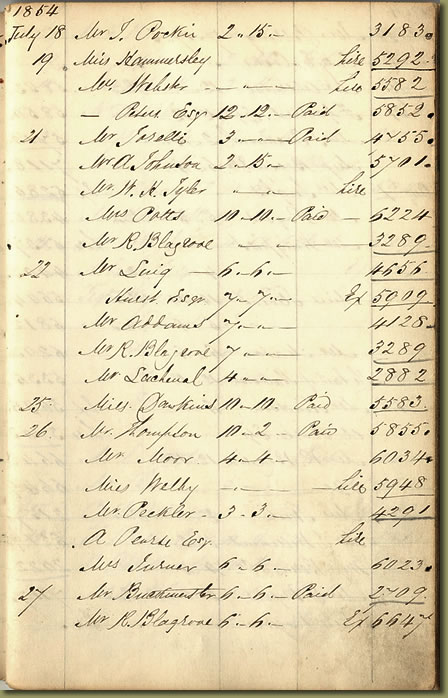 1854
July 18 Mr J. Pockir 2 .. 15 .. 3183.
19 Miss Hammersley hire 5292.
Mrs Webster hire 5582
— Peters Esqr 12 .. 12 .. Paid 5852.
21 Mr Jaralli 3 .. Paid 4755.
Mr A Johnson 2 .. 15 .. 5701.
Mr W. H. Tyler hire
Mrs Potts 10 .. 10 .. Paid 6224
Mr R. Blagrove 3289
22 Mr Luig 6 .. 6 .. 4656
Hurst Esqr 7 .. 7 .. Ex 5909
Mr Addams 7 .. 4128.
Mr R. Blagrove 7 .. 3289
Mr Lachenal 4 .. 2882
25 Miss Dawkins 10 .. 10 .. Paid 5583.
26 Mr. Thompson 10 .. 2 .. Paid 5855.
Mr Moor 4 .. 4 .. 6034.
Miss Welby hire 5948
Mr. Peckler 3 .. 3 .. 4291
A Pearse Esq hire
Mrs Turner 6 .. 6 .. 6023.
27 Mr Buckmaster 6 .. 6 .. Paid 2709.
Mr R. Blagrove 6 .. 6 .. Ex 6647